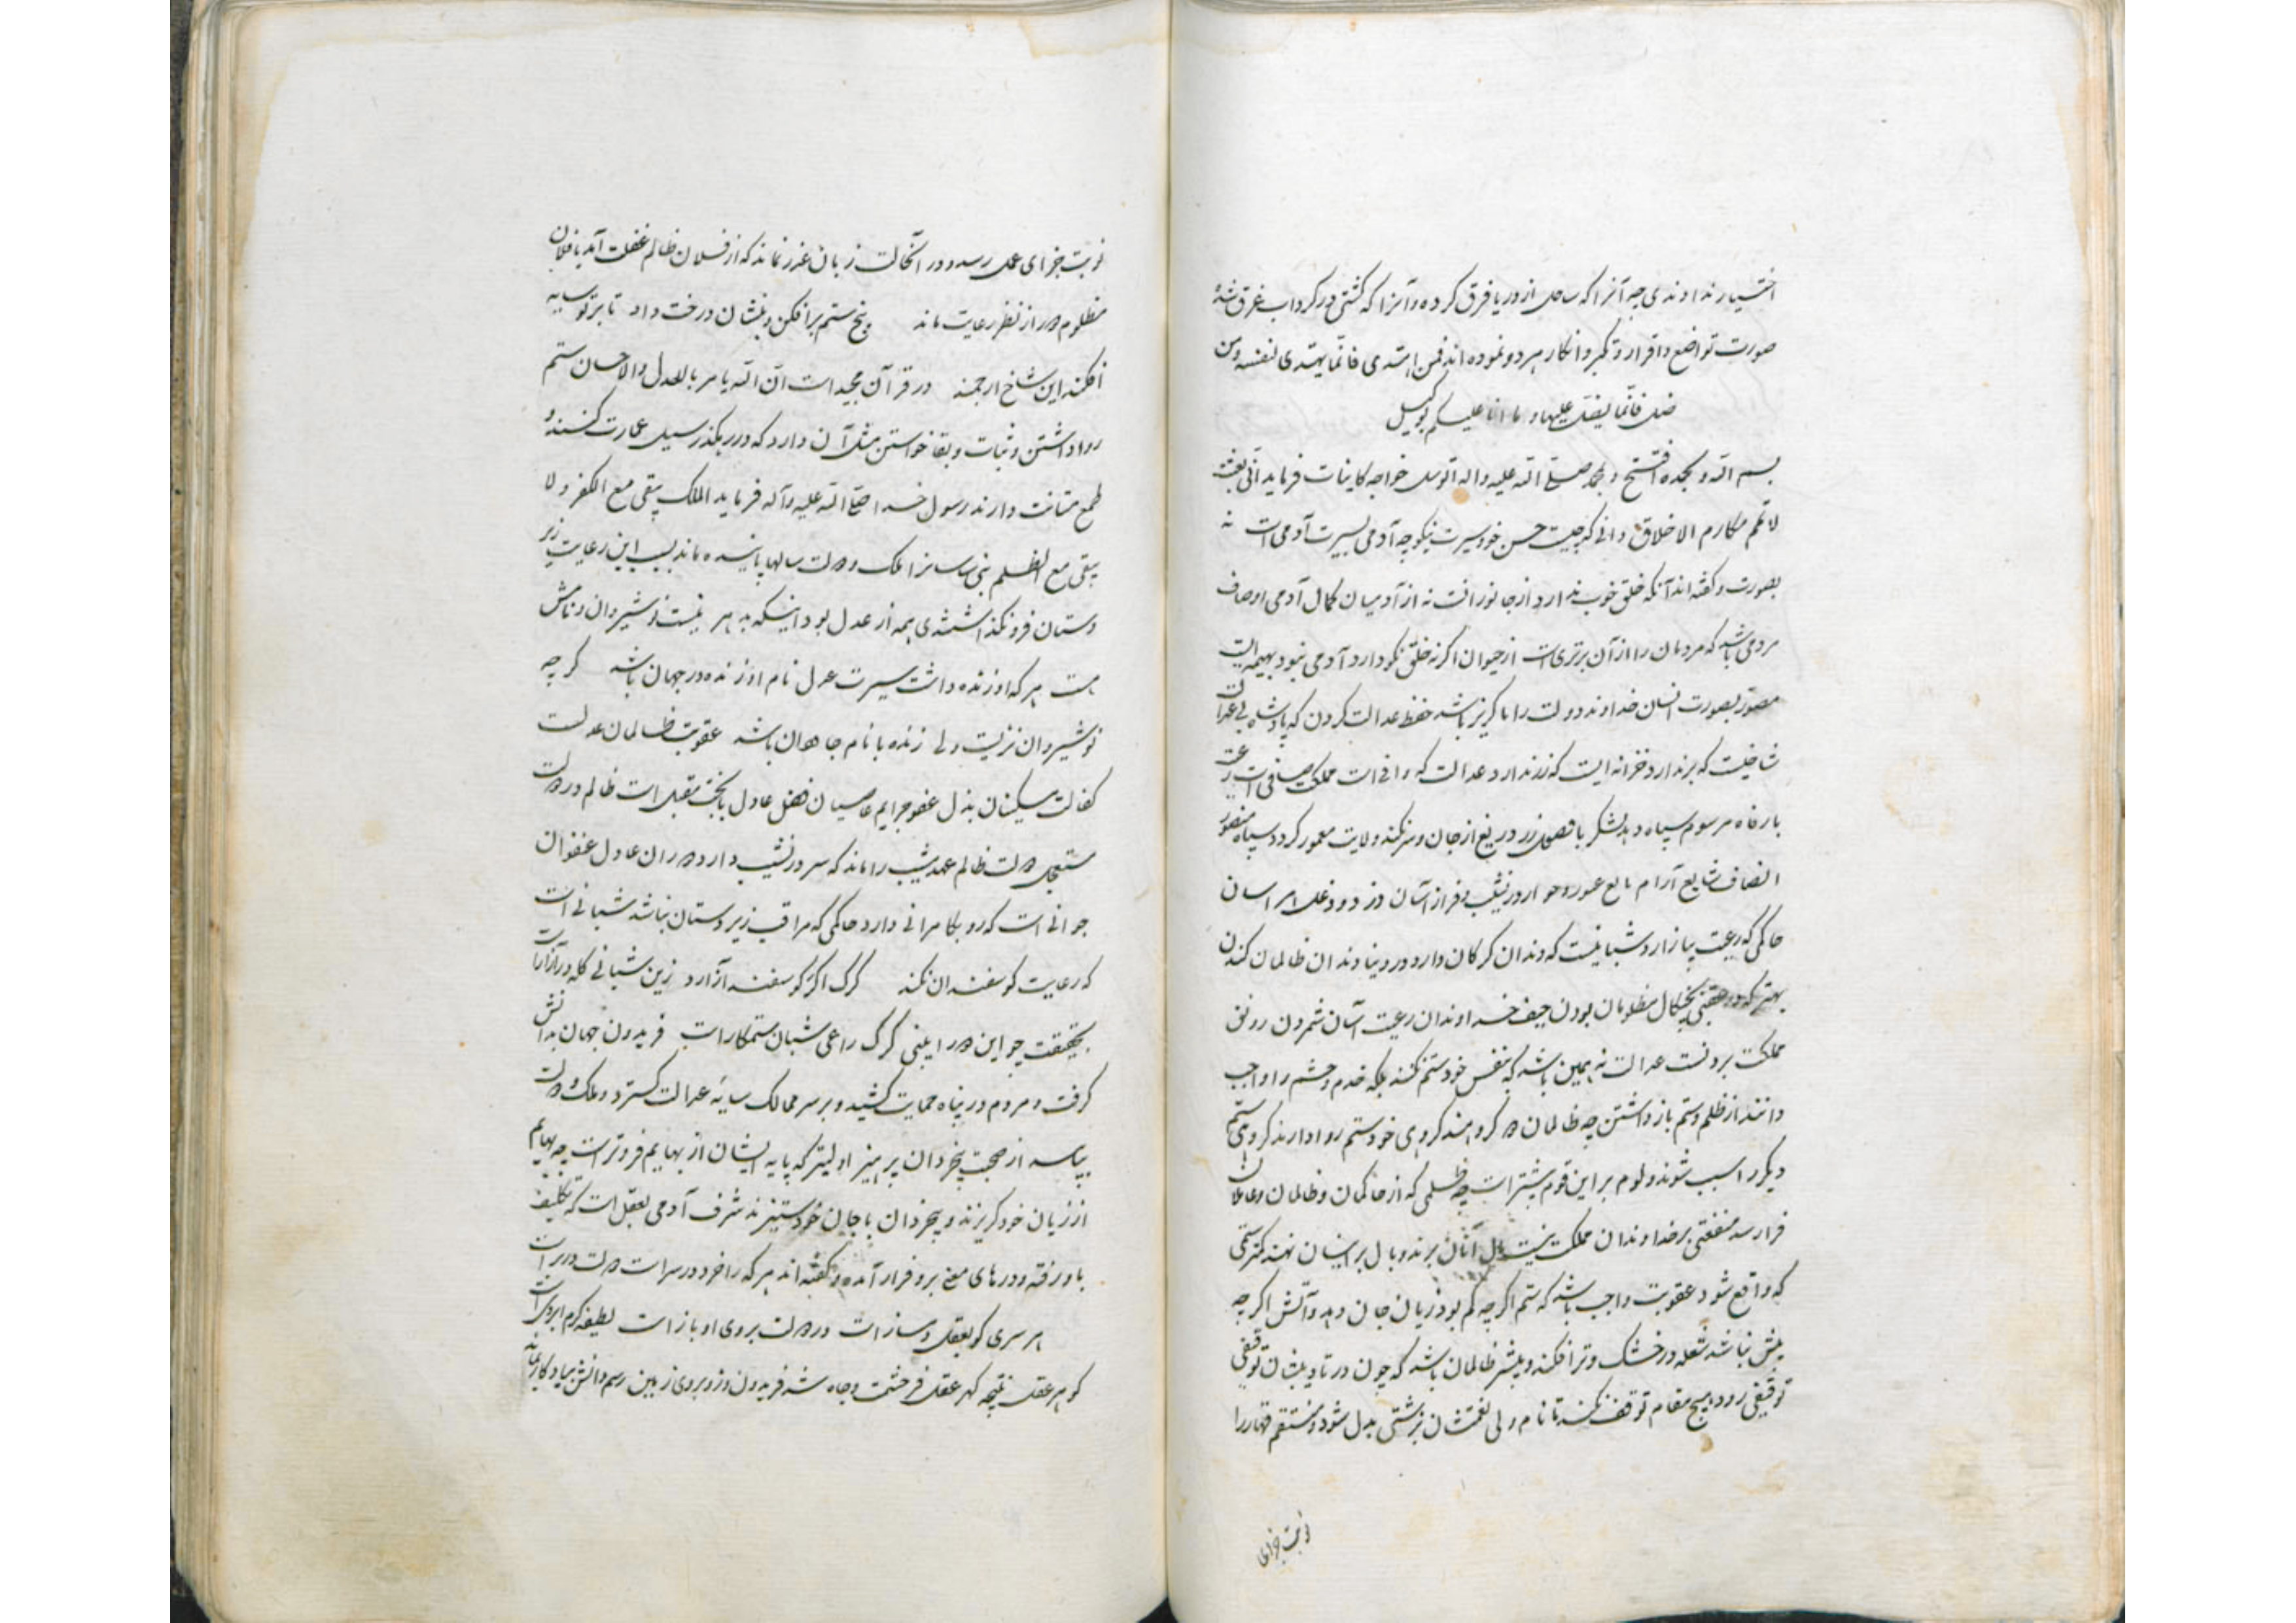 اختیار نداوندی چه آنرا که ساحل از دریا فرق کرده و آنرا که کشتی در کرداب غرق شد
صورت تواضع و اقرار و تکبر و انکار هر دو نموده اند فمن اهتدی فانّما یهتدی لنفسه ومن
ضل فانّما یضل علیها و ما انا علیکم بوکیل
بسم الله و بحمده افتتح و بمحمد صلی الله علیه واله اتوسل خواجه کاینات فرماید انّی بعثت
لاتمم مکارم الاخلاق دانی که چیست حسن خو و سیرت نیکو چه آدمی بسیرت آدمی است نه
بصورت و کفته اند آنکه خلق خوب ندارد از جانورانست نه از آدمیان کمال آدمی اوصاف
مردمی باشد که مردمان را از آن برتری است از حیوان اکر نه خلق نکو دارد آدمی نبود بهیمه ایست
مصور بصورت انسان خداوند دولت را ناکزیر باشد حفظ عدالت کردن که پادشاه بی عدالت
شاخیست که بر ندارد و خزانه ایست که زر ندارد عدالت که وافی است مملکت صافی است رعیت
بارفاه مرسوم سپاه دهد لشکر با فصحل زر دریغ از جان و سر نکند ولایت معمور کردد سپاه منصور
انصاف شایع آرام مایع عبور و حوار در نشیب و فراز آسان دزد و دغل هراسان
حاکمی که رعیت بیازارد شبانیست که دندان کرکان دارد در دنیا دندان ظالمان کندن
بهتر که در عقبی بچنکال مظلومان بودن حیف خداوندان رعیت آسان شمردن رونق
مملکت بردنست عدالت نه همین باشد که بنفس خود ستم نکنند بلکه خدم و حشم را واجب
دانند از ظلم و ستم بازداشتن چه ظالمان دو کروهند کروهی خود ستم روا دارند کروهی ستم
دیکر را سبب شوند و لوم بر این قوم بیشتر است چه ظلمی که از حاکمان و ظالمان و عاملان
فرا رسد منفعتی بر خداوندان مملکت نیست مال آنان برند وبال بر اینان نهند کمتر ستمی
که واقع شود عقوبت واجب باشد که ستم اکرچه کم بود زیان جان دهد و آتش اکرچه
بیش نباشد شعله در خشک و تر افکند و بیشتر ظالمان باشد که چون در تادیبشان توقیفی
توقیفی رود بهیچ مقام توقف نکنند تا نام ولی نعمتشان بزشتی بدل شود و منتقم قهار را
نوبت جزای
نوبت جزای عمل رسد و در آنحالت زبان عذر نماند که از فلان ظالم غفلت آمد یا فلان
مظلوم دور از نظر رعایت ماند بیخ ستم برافکن و بنشان درخت داد تا بر تو سایه
افکند این شاخ ارجمند در قرآن مجید است انّ الله یامر بالعدل والاحسان ستم
روا داشتن و ثبات و بقا خواستن مثل آن دارد که در رهکذر سیل عمارت کنند و
طمع متانت دارند رسول خدا صلّی الله علیه و آله فرماید الملک یبقی مع الکفر و لا
یبقی مع الظلم بنی ساسانرا ملک و دولت سالها پاینده ماند بسبب این رعایت زیر
دستان فرو نکذاشتندی همه از عدل بود اینکه به دهر نیست نوشیروان و نامش
هست هر که او زنده داشت سیرت عدل نام او زنده در جهان باشد کرچه
نوشیروان نزیست ولی زنده با نام جاودان باشد عقوبت ظالمان عدلست
کفالت مسکینان بذل عفو جرایم عاصیان فضل عادل با بخت مقبل است ظالم در دولت
مستعجل دولت ظالم عهد شیب را ماند که سر در نشیب دارد دوران عادل عنفوان
جوانی است که رو بکامرانی دارد حاکمی که مراقب زیردستان نباشد شبانی است
که رعایت کوسفندان نکند کرک اکر کوسفند آزارد زین شبانی کله در آزار است
بحقیقت چو این دو را بینی کرک راعی شبان ستمکار است فریدون جهان بدانش
کرفت و مردم در پناه حمایت کشید و بر سر ممالک سایه عدالت کسترد و ملک و دولت
بپاید از صحبت بیخردان پرهیز اولیتر که پایه ایشان از بهایم فروتر است چه بهایم
از زیان خود کریزند و بیخردان با جان خود ستیزند شرف آدمی بعقل است که تکلیف
باو رفته و درهای معنی برو فراز آمده و کفته اند هر که را خرد در سر است دولت در بر است
هر سری کو بعقل دمساز است در دولت بروی او باز است لطیفه کرم ابروی است
کوهر عقل نتیجه کهر عقل فر حشمت و جاه شد فریدون وزو بروی زمین رسم دانش بیادکار بماند